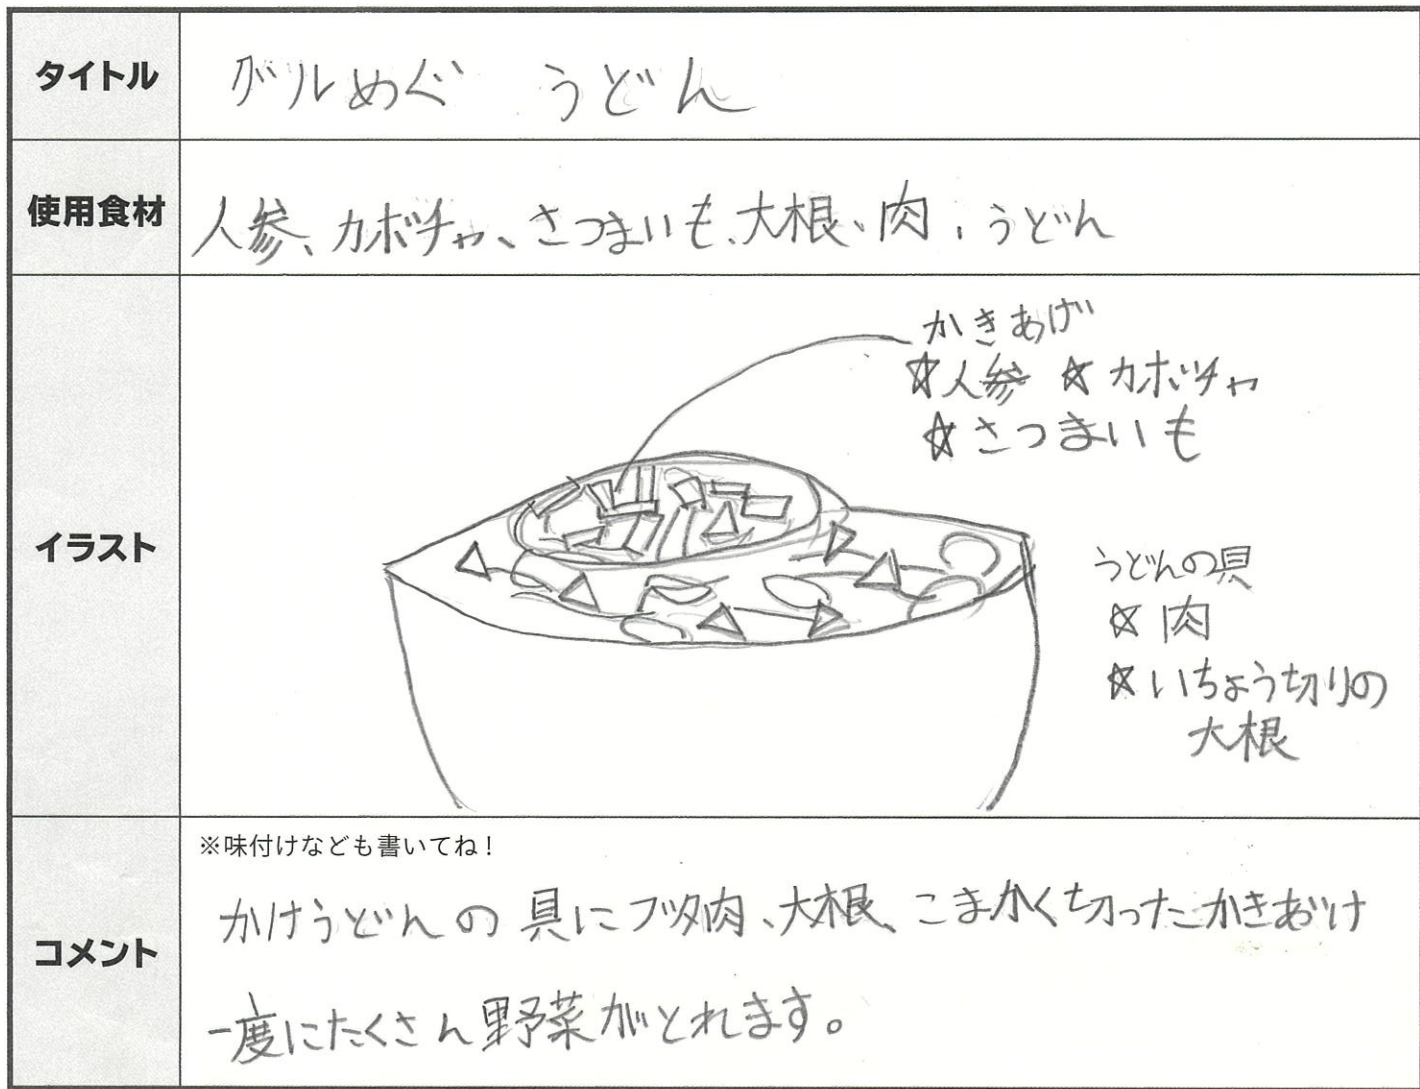 タイトル
グルめぐ うどん
使用食材
人参、カボチャ、さつまいも、大根、肉、うどん
イラスト
かきあげ
☆人参 ☆カボチャ
☆さつまいも
うどんの具
☆肉
☆いちょう切りの
大根
コメント
※味付けなども書いてね！
かけうどんの具にブタ肉、大根、こまかく切ったかきあげ
一度にたくさん野菜がとれます。